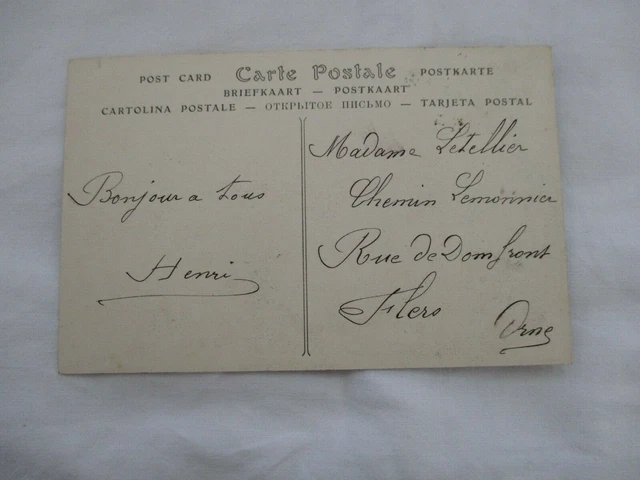 POST CARD Carte Postale POSTKARTE
BRIEFKAART — POSTKAART
CARTOLINA POSTALE — ОТКРЫТОЕ ПИСЬМО — TARJETA POSTAL
Bonjour a tous
Henri
Madame Letellier
Chemin Lemonnier
Rue de Domfront
Flers
Orne